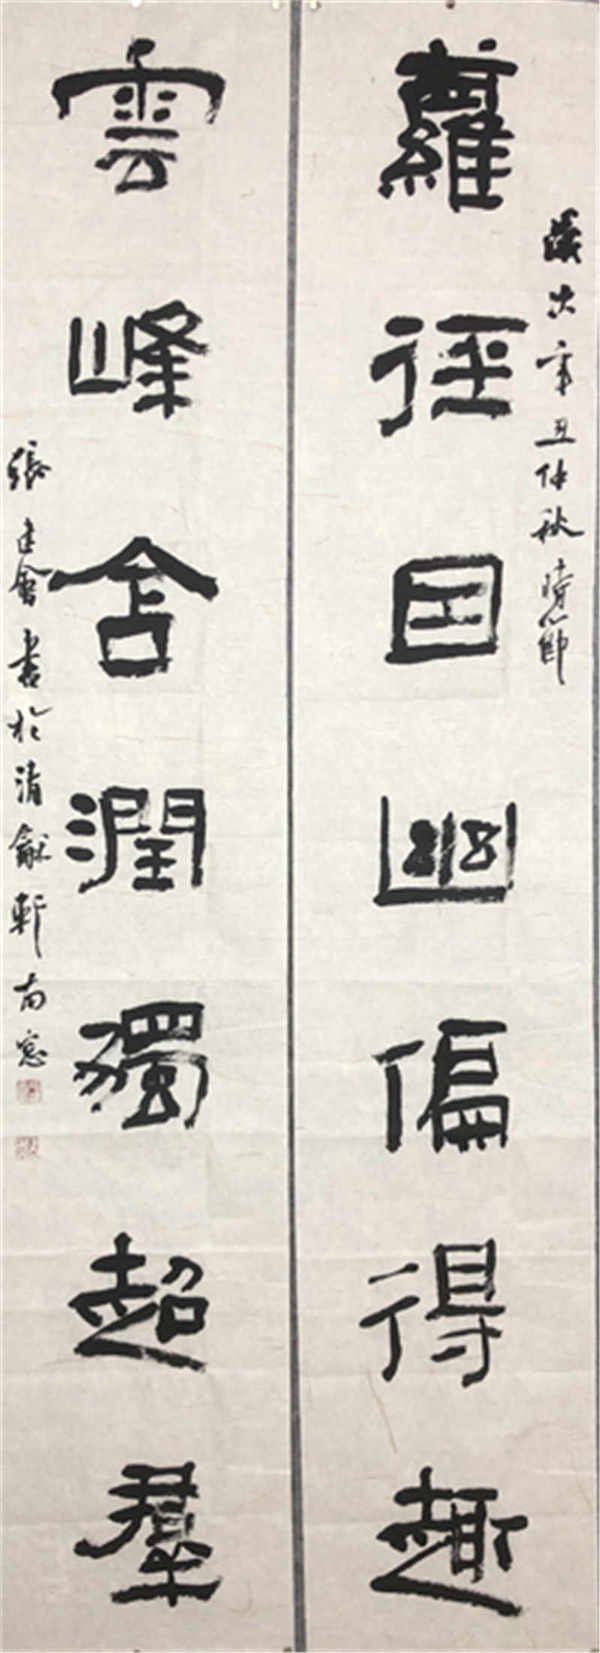 歲次辛丑仲秋時節
蘿徑囙幽偏得趣
雲峰含潤獨超羣
張建會書於清龢軒南窓